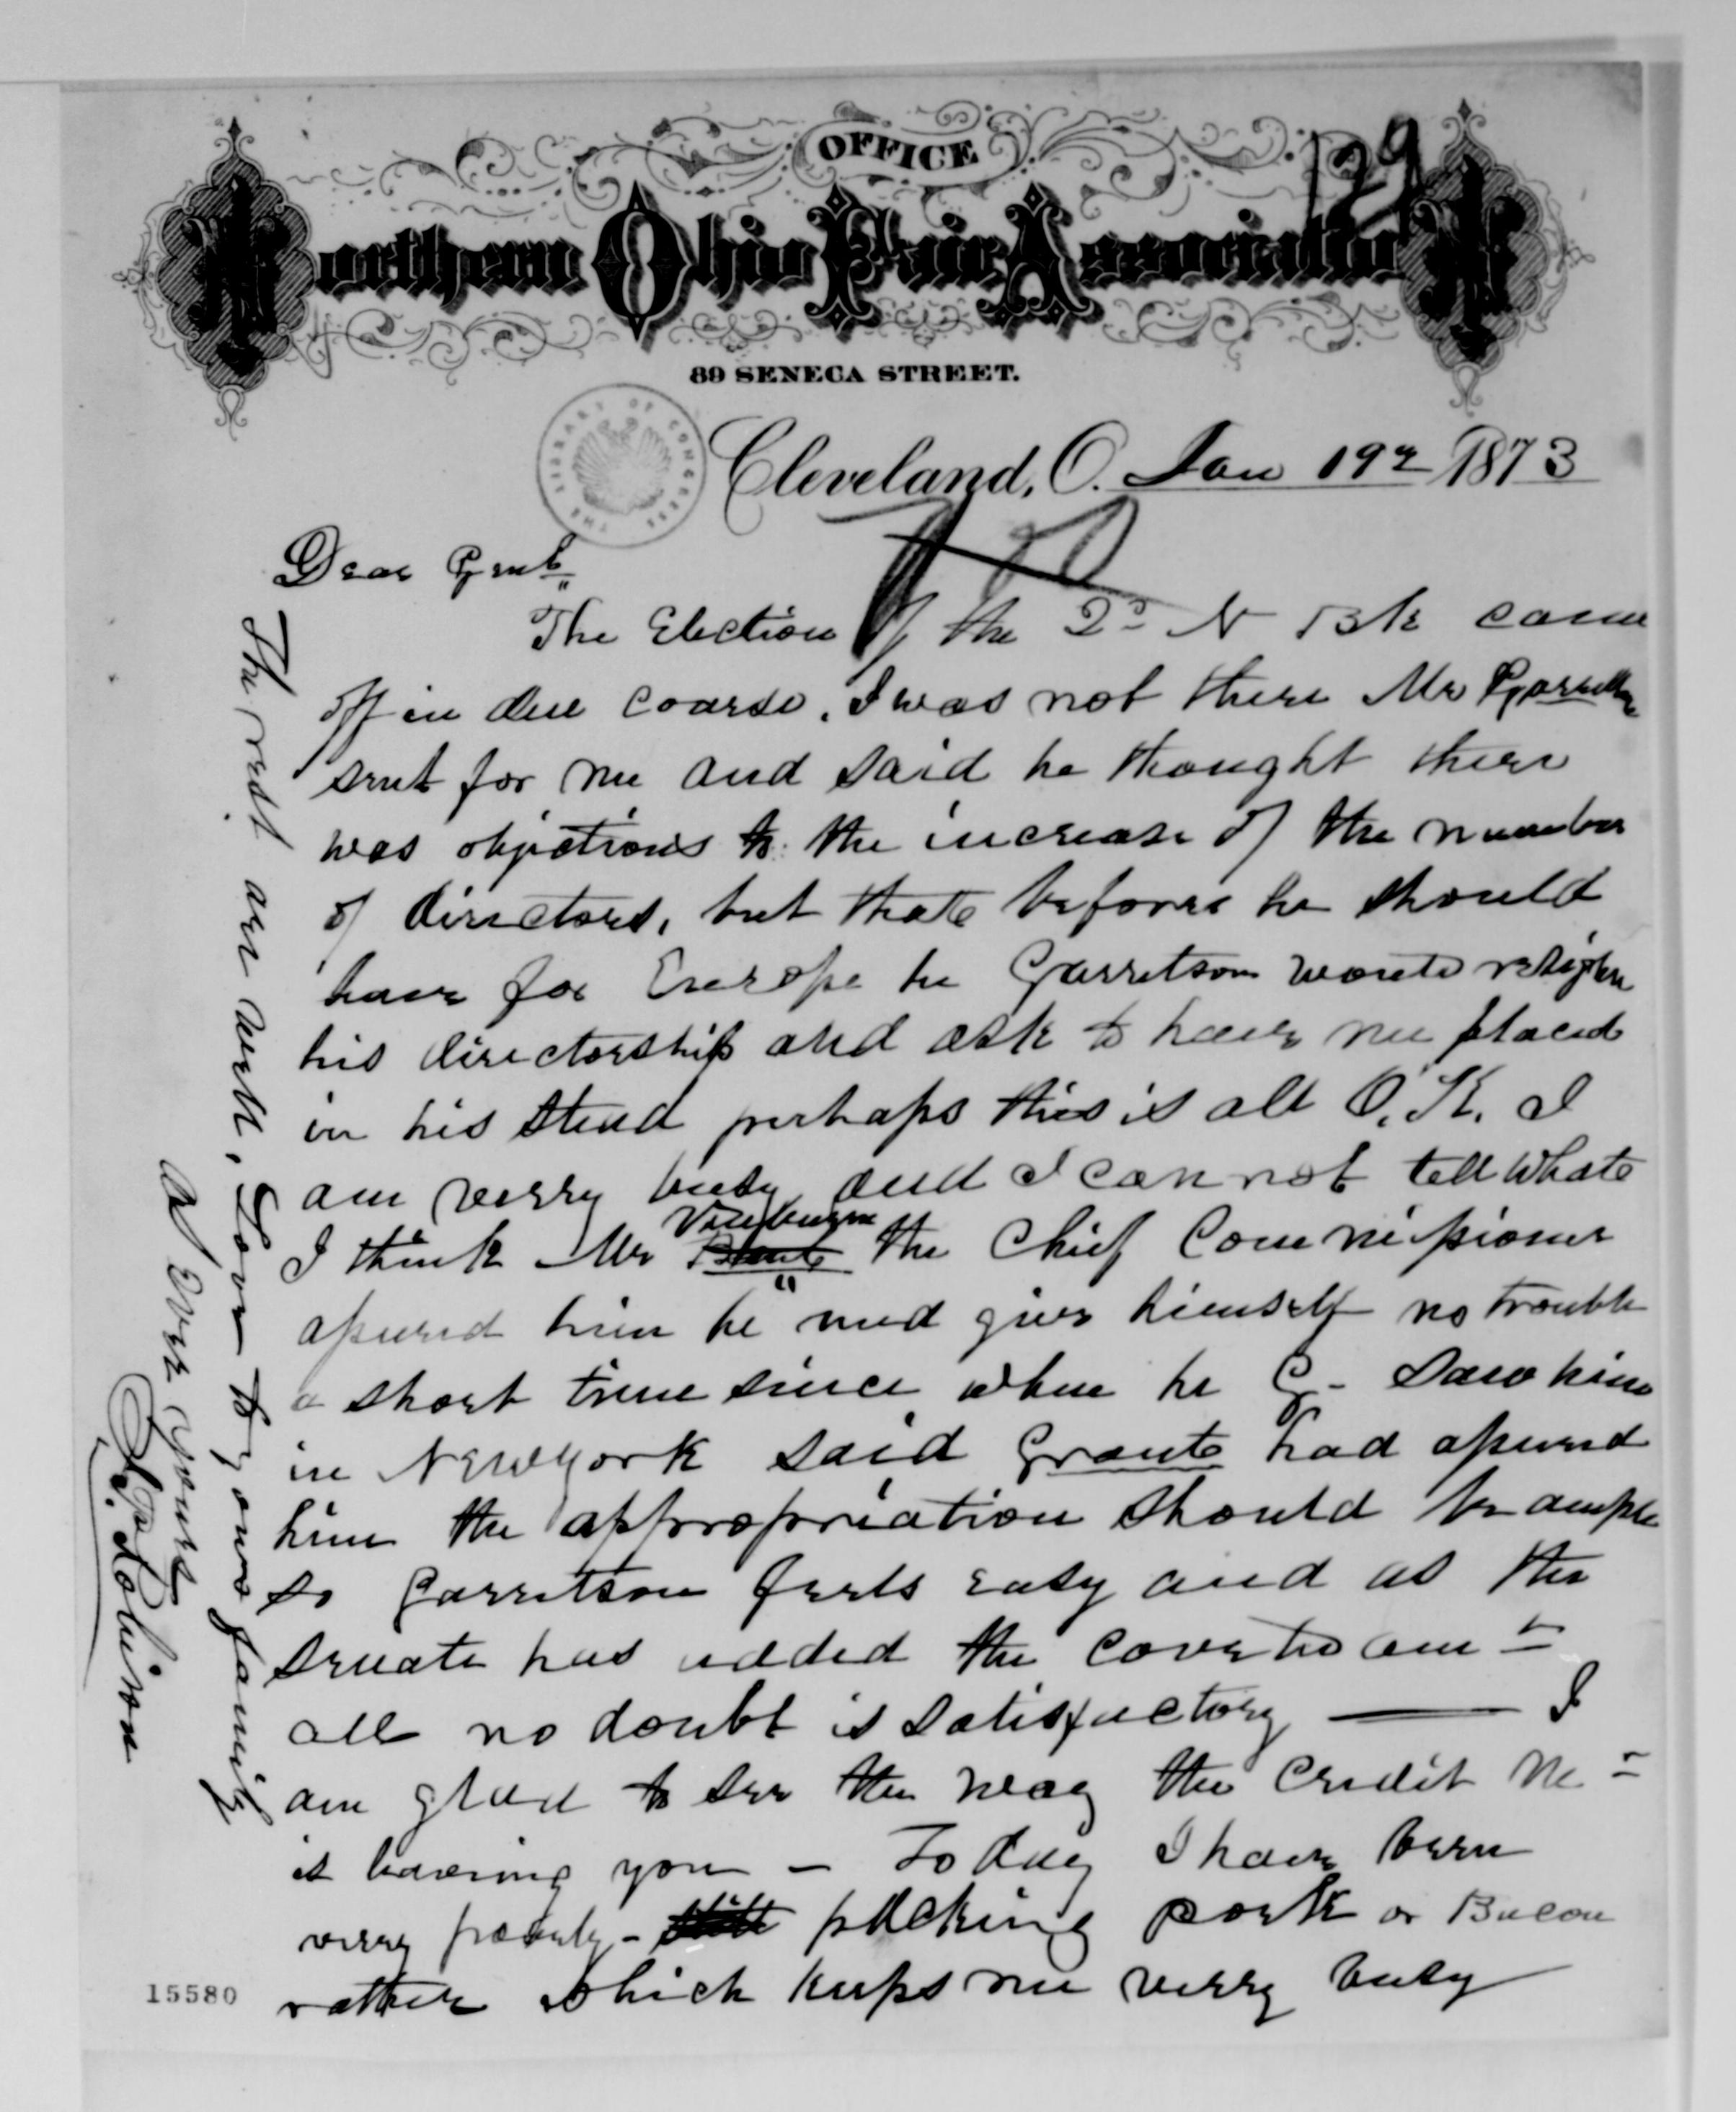 129
OFFICE
Northern Ohio Fair Association
89 SENECA STREET.
THE LIBRARY OF CONGRESS
Cleveland, O. Jan 19th 1873
Dear Genl
The Election of the 2d N Bk came
off in due coarse. I was not there Mr Garretson
sent for me and said he thought there
was objections to the increase of the number
of directors, but that before he should
leave for Europe he Garretson would resign
his directorship and ask to have me placed
in his stead perhaps this is all O.K. I
am verry busy and I can not tell what
I think Mr the Chief Commissioner
assured him he need give himself no trouble
a short time since when he G- saw him
in New York said Grant had assured
him the appropriation should be ample
so Garretson feels easy and as the
Senate has added the
all no doubt is satisfactory —— I
am glad to see the way the Credit M-
is leaving you - To day I have been
verry - packing pork or Bacon
rather which keeps me verry busy
The rest are well, Love to your family
As ever yours
Robison
15580